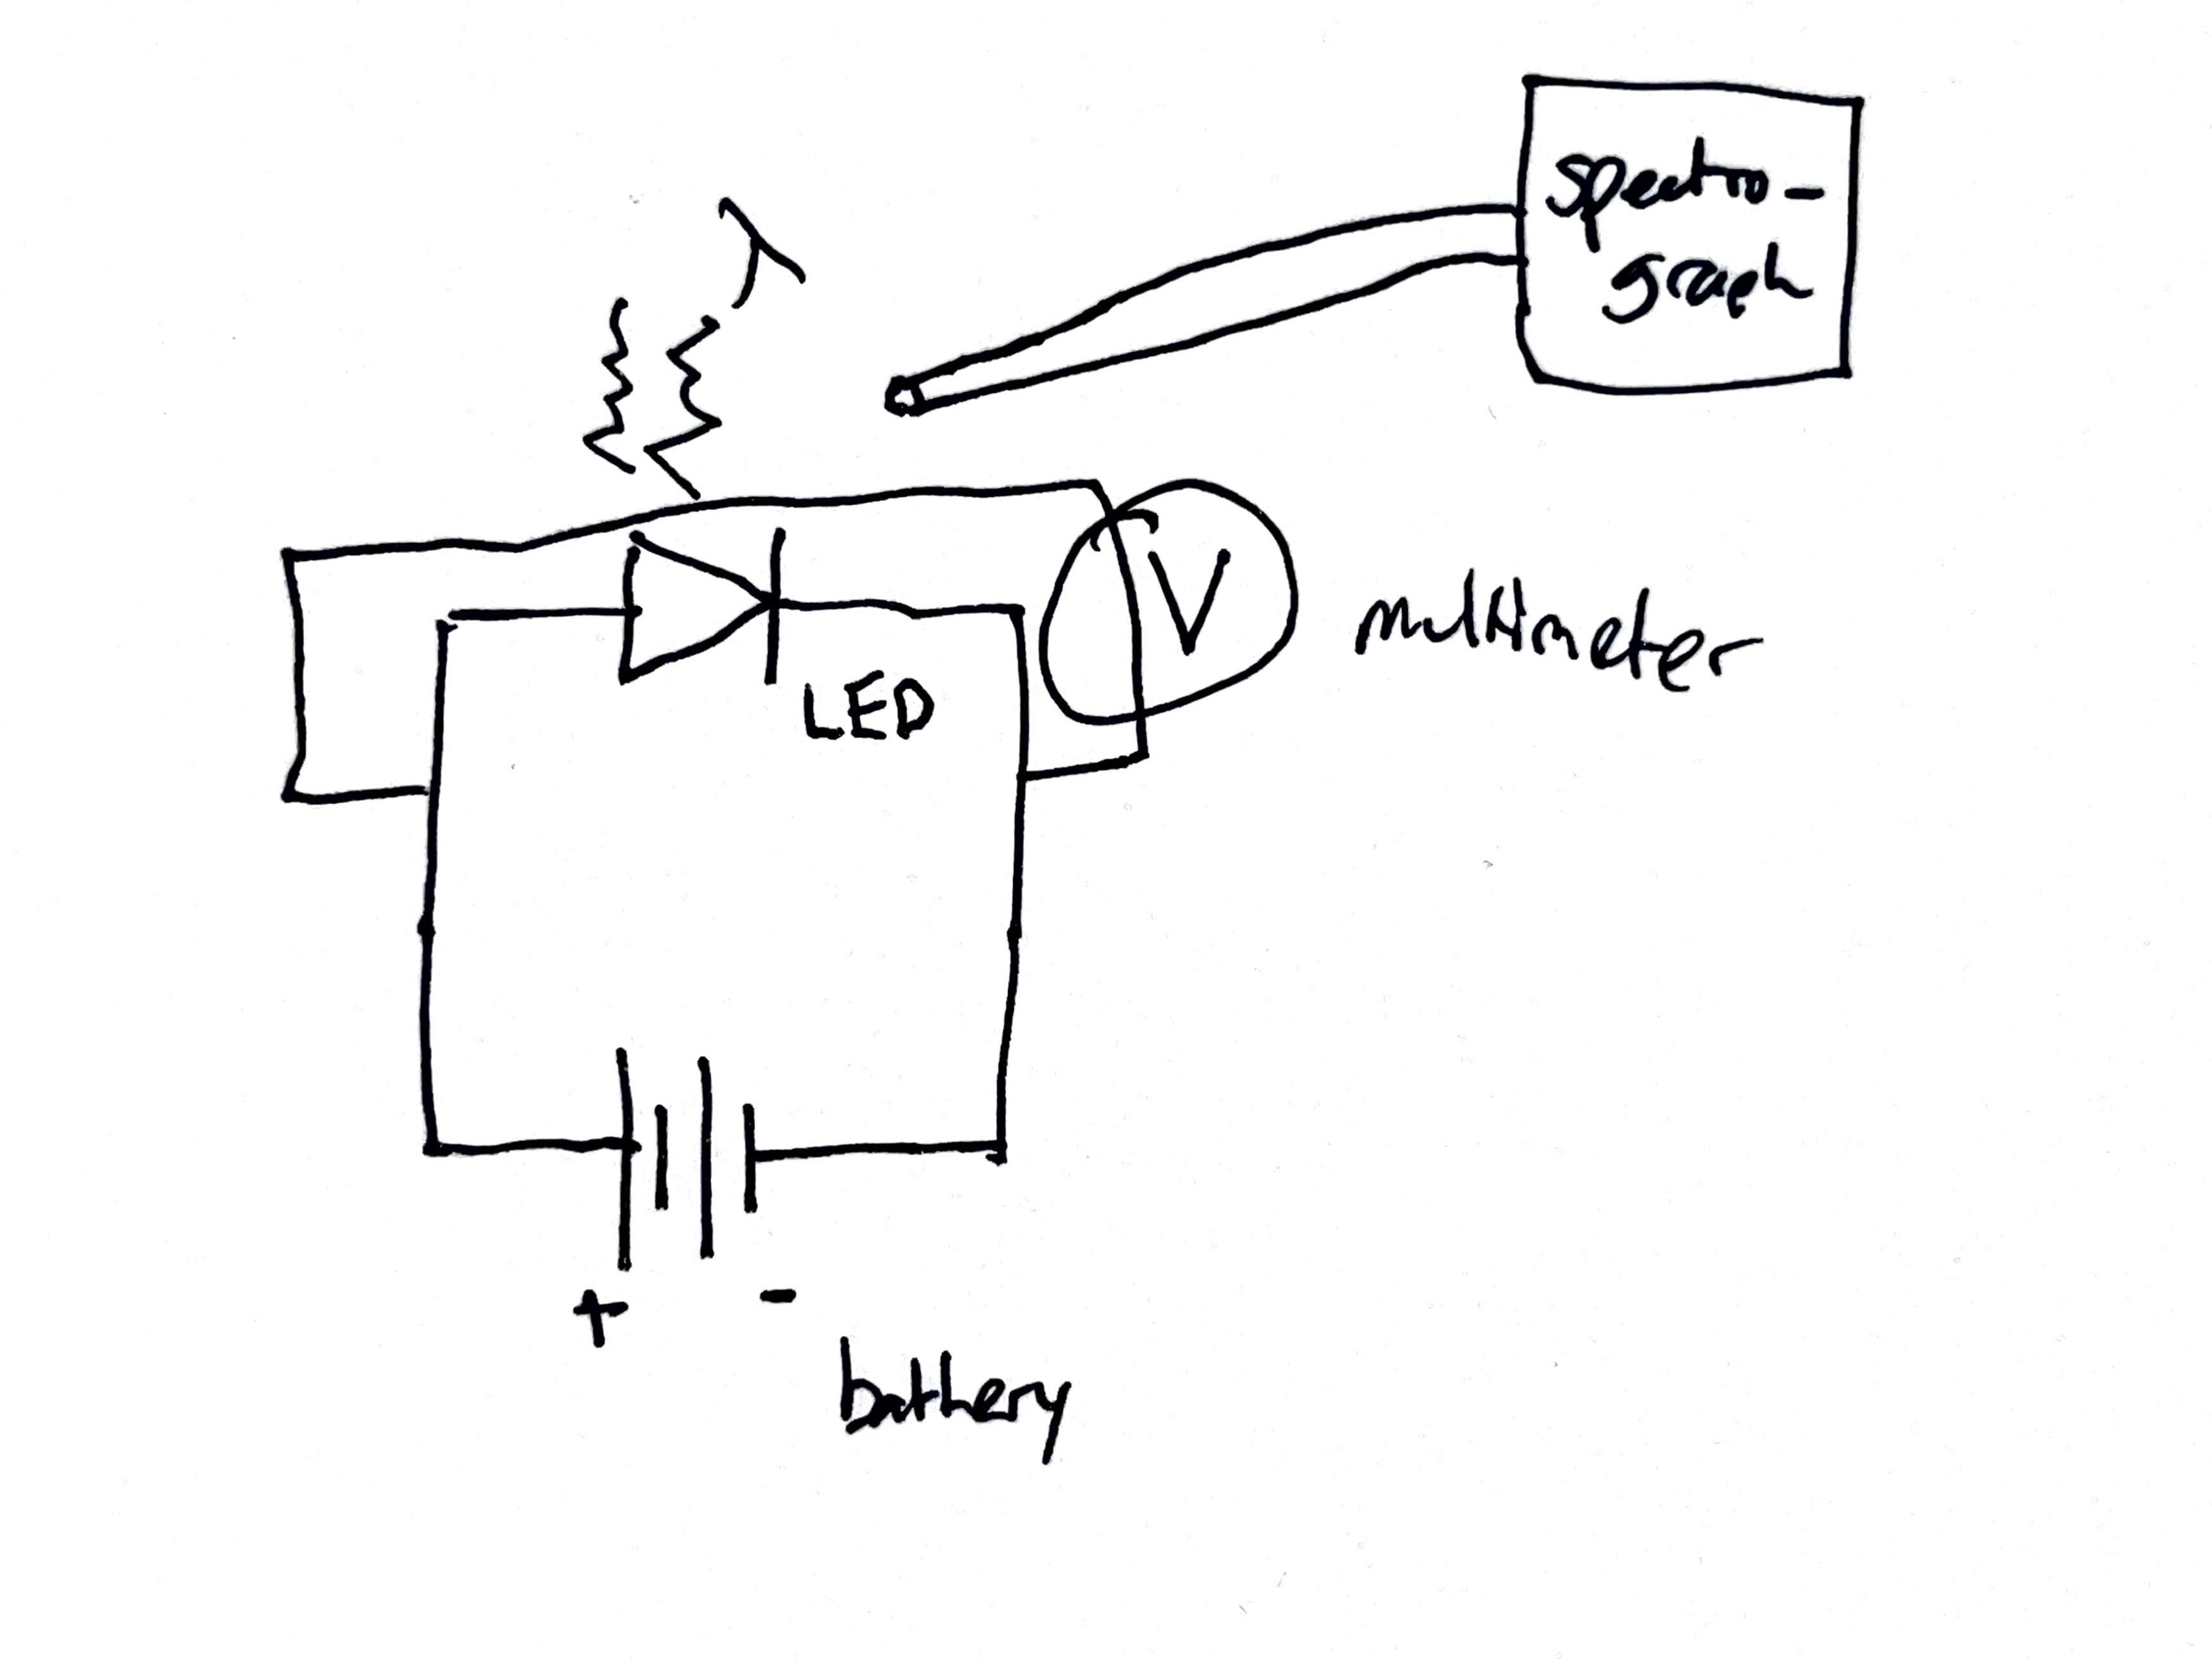 spectro-
graph
λ
V
multimeter
LED
+ -
battery